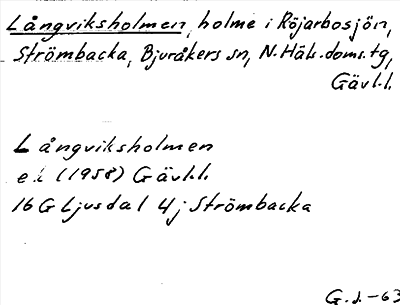 Långviksholmen, holme i Röjarbosjön,
Strömbacka, Bjuråkers sn, N. Häls. doms. tg,
Gävl.l.
Långviksholmen
ek (1958) Gävl.l.
16 G Ljusdal 4j Strömbacka
G. J. -63